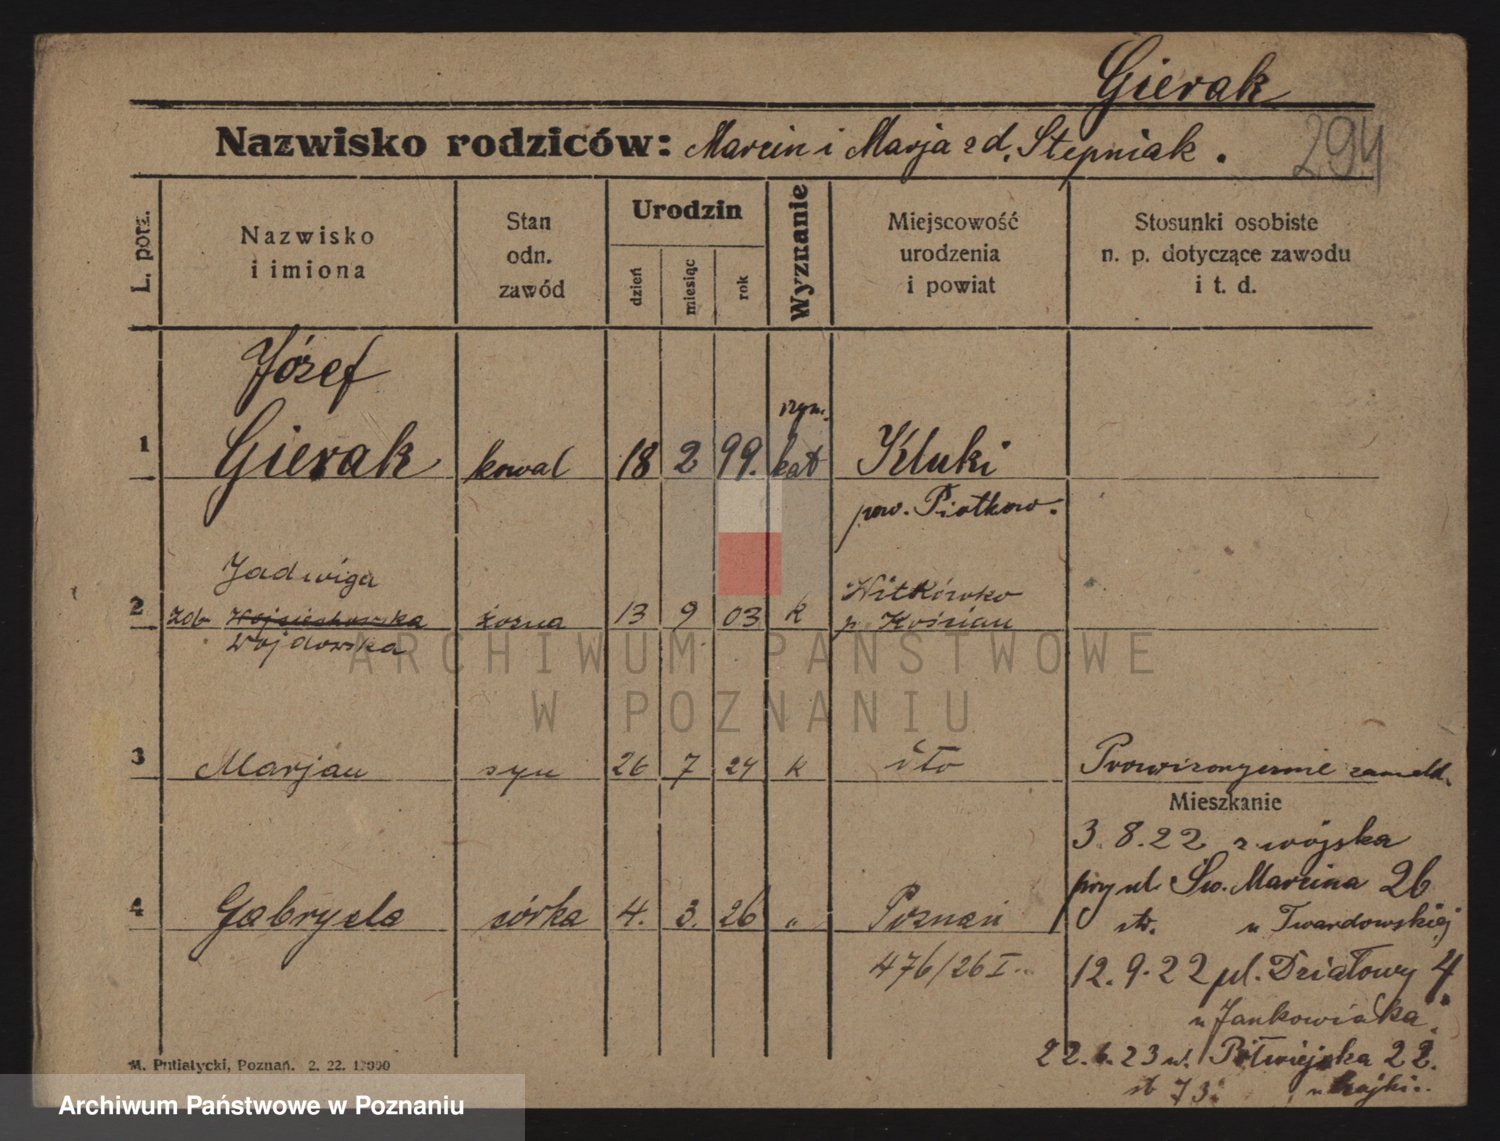 Gierak
Nazwisko rodziców: Marcin i Marja zd. Stępniak.
294
L. porz.
Nazwisko
i imiona
Stan
odn.
zawód
Urodzin
dzień
miesiąc
rok
Wyznanie
Miejscowość
urodzenia
i powiat
Stosunki osobiste
n. p. dotyczące zawodu
i t. d.
Józef
rzym.
1 Gierak kowal 18 2 99. kat Kluki
pow. Piotkow.
Jadwiga
Witkówko
2 zdb Wojciechowska żona 13 9 03 k p. Kościan
Wojdowska
3 Marjan syn 26 7 24 k Prowizorycznie zameld.
Mieszkanie
3.8.22 z wojska
przy ul. Św. Marcina 26
4 Gabryela córka 4. 3. 26 " Poznań
str. u Twardowskiej
476/26 I.
12.9.22 pl. Działowy 4
u Jankowiaka.
22.6.23 ul. Półwiejska 22.
M. Putiatycki, Poznań. 2. 22. 12000
ARCHIWUM PAŃSTWOWE
W POZNANIU
Archiwum Państwowe w Poznaniu